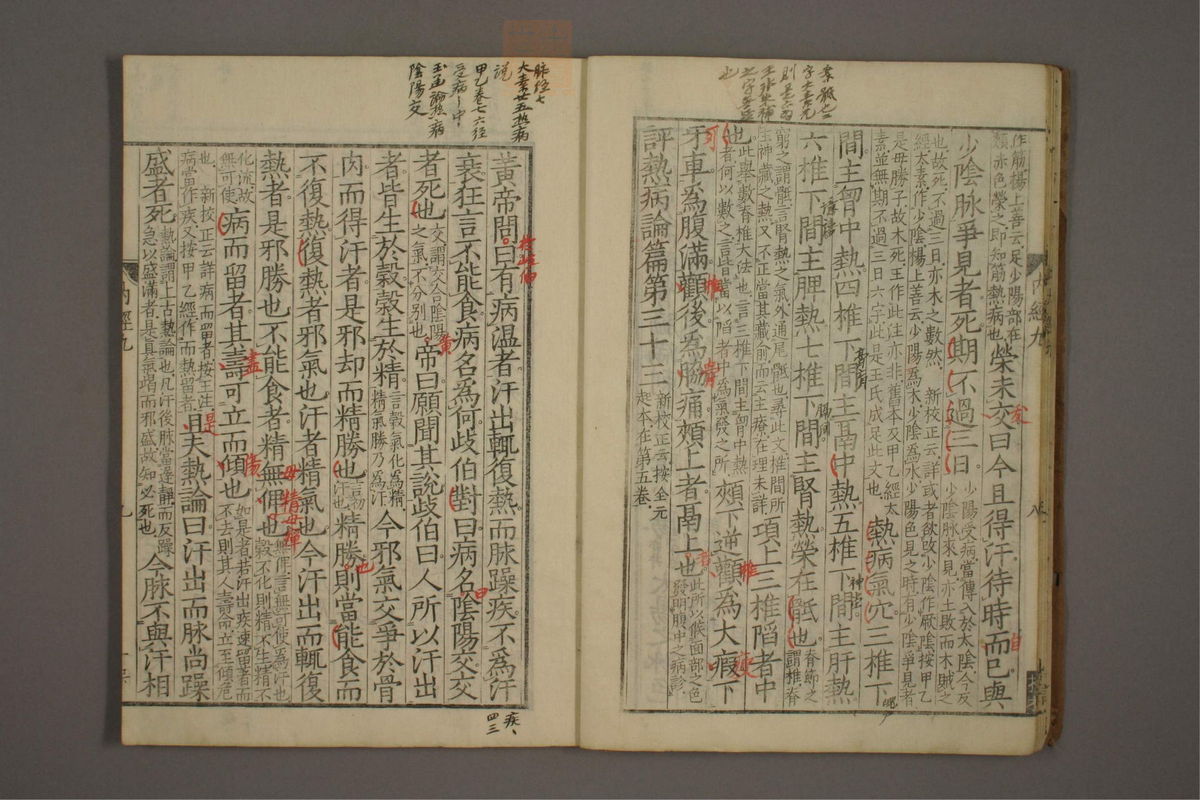 作筋楊上善云足少陽部在
頰赤色榮之即知筋熱病也
榮未交曰今且得汗待時而已與
少陰脉爭見者死期不過三日
少陽受病當傳入於太陰今反
少陰脉來見亦土敗而木賊之
也故死不過三日亦木之數然
新校正云詳或者欲改少陰作厥陰按甲乙
經太素作少陰楊上善云少陽為木少陰為水少陽色見之時有少陰爭見者
是母勝子故木死王作此注亦非舊本及甲乙經太
素並無期不過三日六字此是王氏成足此文也
熱病氣穴三椎下
間主胷中熱四椎下間主鬲中熱五椎下間主肝熱
六椎下間主脾熱七椎下間主腎熱榮在骶也
脊節之
謂椎脊
窮之謂骶言腎熱之氣外通尾骶也尋此文椎間所
主神藏之熱又不正當其藏俞而云主療在理未詳
項上三椎陷者中
也
此舉數脊椎大法也言三椎下間主胷中熱
者何以數之言皆當以陷者中為氣發之所
頰下逆顴為大瘕下
牙車為腹滿顴後為脇痛頰上者鬲上也
此所以候面部之色
發明腹中之病診
評熱病論篇第三十三
新校正云按全元
起本在第五卷
黄帝問曰有病溫者汗出輒復熱而脉躁疾不為汗
衰狂言不能食病名為何歧伯對曰病名陰陽交交
者死也
交謂交合陰陽
之氣不分別也
帝曰願聞其說歧伯曰人所以汗出
者皆生於穀穀生於精
言穀氣化為精
精氣勝乃為汗
今邪氣交爭於骨
肉而得汗者是邪却而精勝也
精勝則當能食而
不復熱復熱者邪氣也汗者精氣也今汗出而輒復
熱者是邪勝也不能食者精無俾也
無俾言無可使為汗也
穀不化則精不生精不
化流故
無可使
病而留者其壽可立而傾也
如是者若汗出疾速留著而
不去則其人壽命立至傾危
也 新校正云詳病而留者按王注
病當作疾又按甲乙經作而熱留者
且夫熱論曰汗出而脉尚躁
盛者死
熱論謂上古熱論也凡汗後脉當遲靜而反躁
急以盛滿者是真氣竭而邪盛故知必死也
今脉不與汗相
脉經七
大素廿五熱病
說
甲乙卷七六經
受病
玉函論熱病
陰陽交
内經九
九